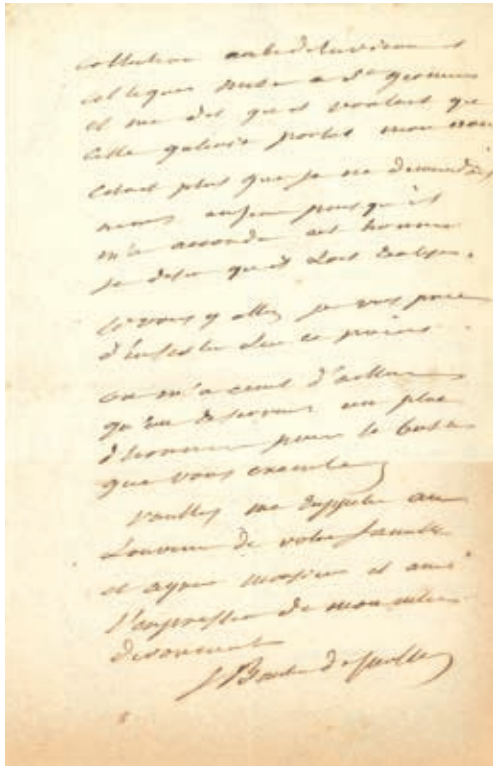 collection antediluvienne et
celtiques mise a St germain
et me dit qu'il voulait que
cette galerie portat mon nom
C'etait plus que je ne demandais
mais enfin puisqu'il
m'a accordé cet honneur
je desire qu'il soit realisé.
Si vous y allez je vous prie
d'insister sur ce point.
on m'a ecrit d'ailleurs
qu'on reservait une place
d'honneur pour le buste
que vous executez
veuillez me rappeler au
souvenir de votre famille
et agreez monsieur et ami
l'expression de mon entier
devouement
J Boucher de Perthes